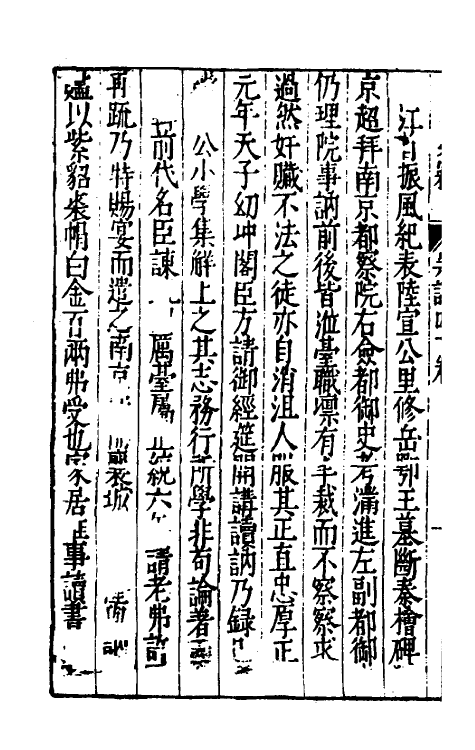 江 振風紀表陸宣公里修岳鄂王墓斷秦檜碑
京超拜南京都察院右僉都御史考滿進左副都御
仍理院事訥前後皆涖臺職凛有手裁而不察察求
過然奸贓不法之徒亦自消沮人服其正直忠厚正
元年天子幼冲閣臣方請御經筵開講讀訥乃録
公小學集解上之其志務行所學非苟論著
前代名臣諫 厲臺屬 統六 請老弗許
再疏乃特賜宴而遣之南京 裴城
遺以紫貂裘帽白金百兩弗受也家居 事讀書